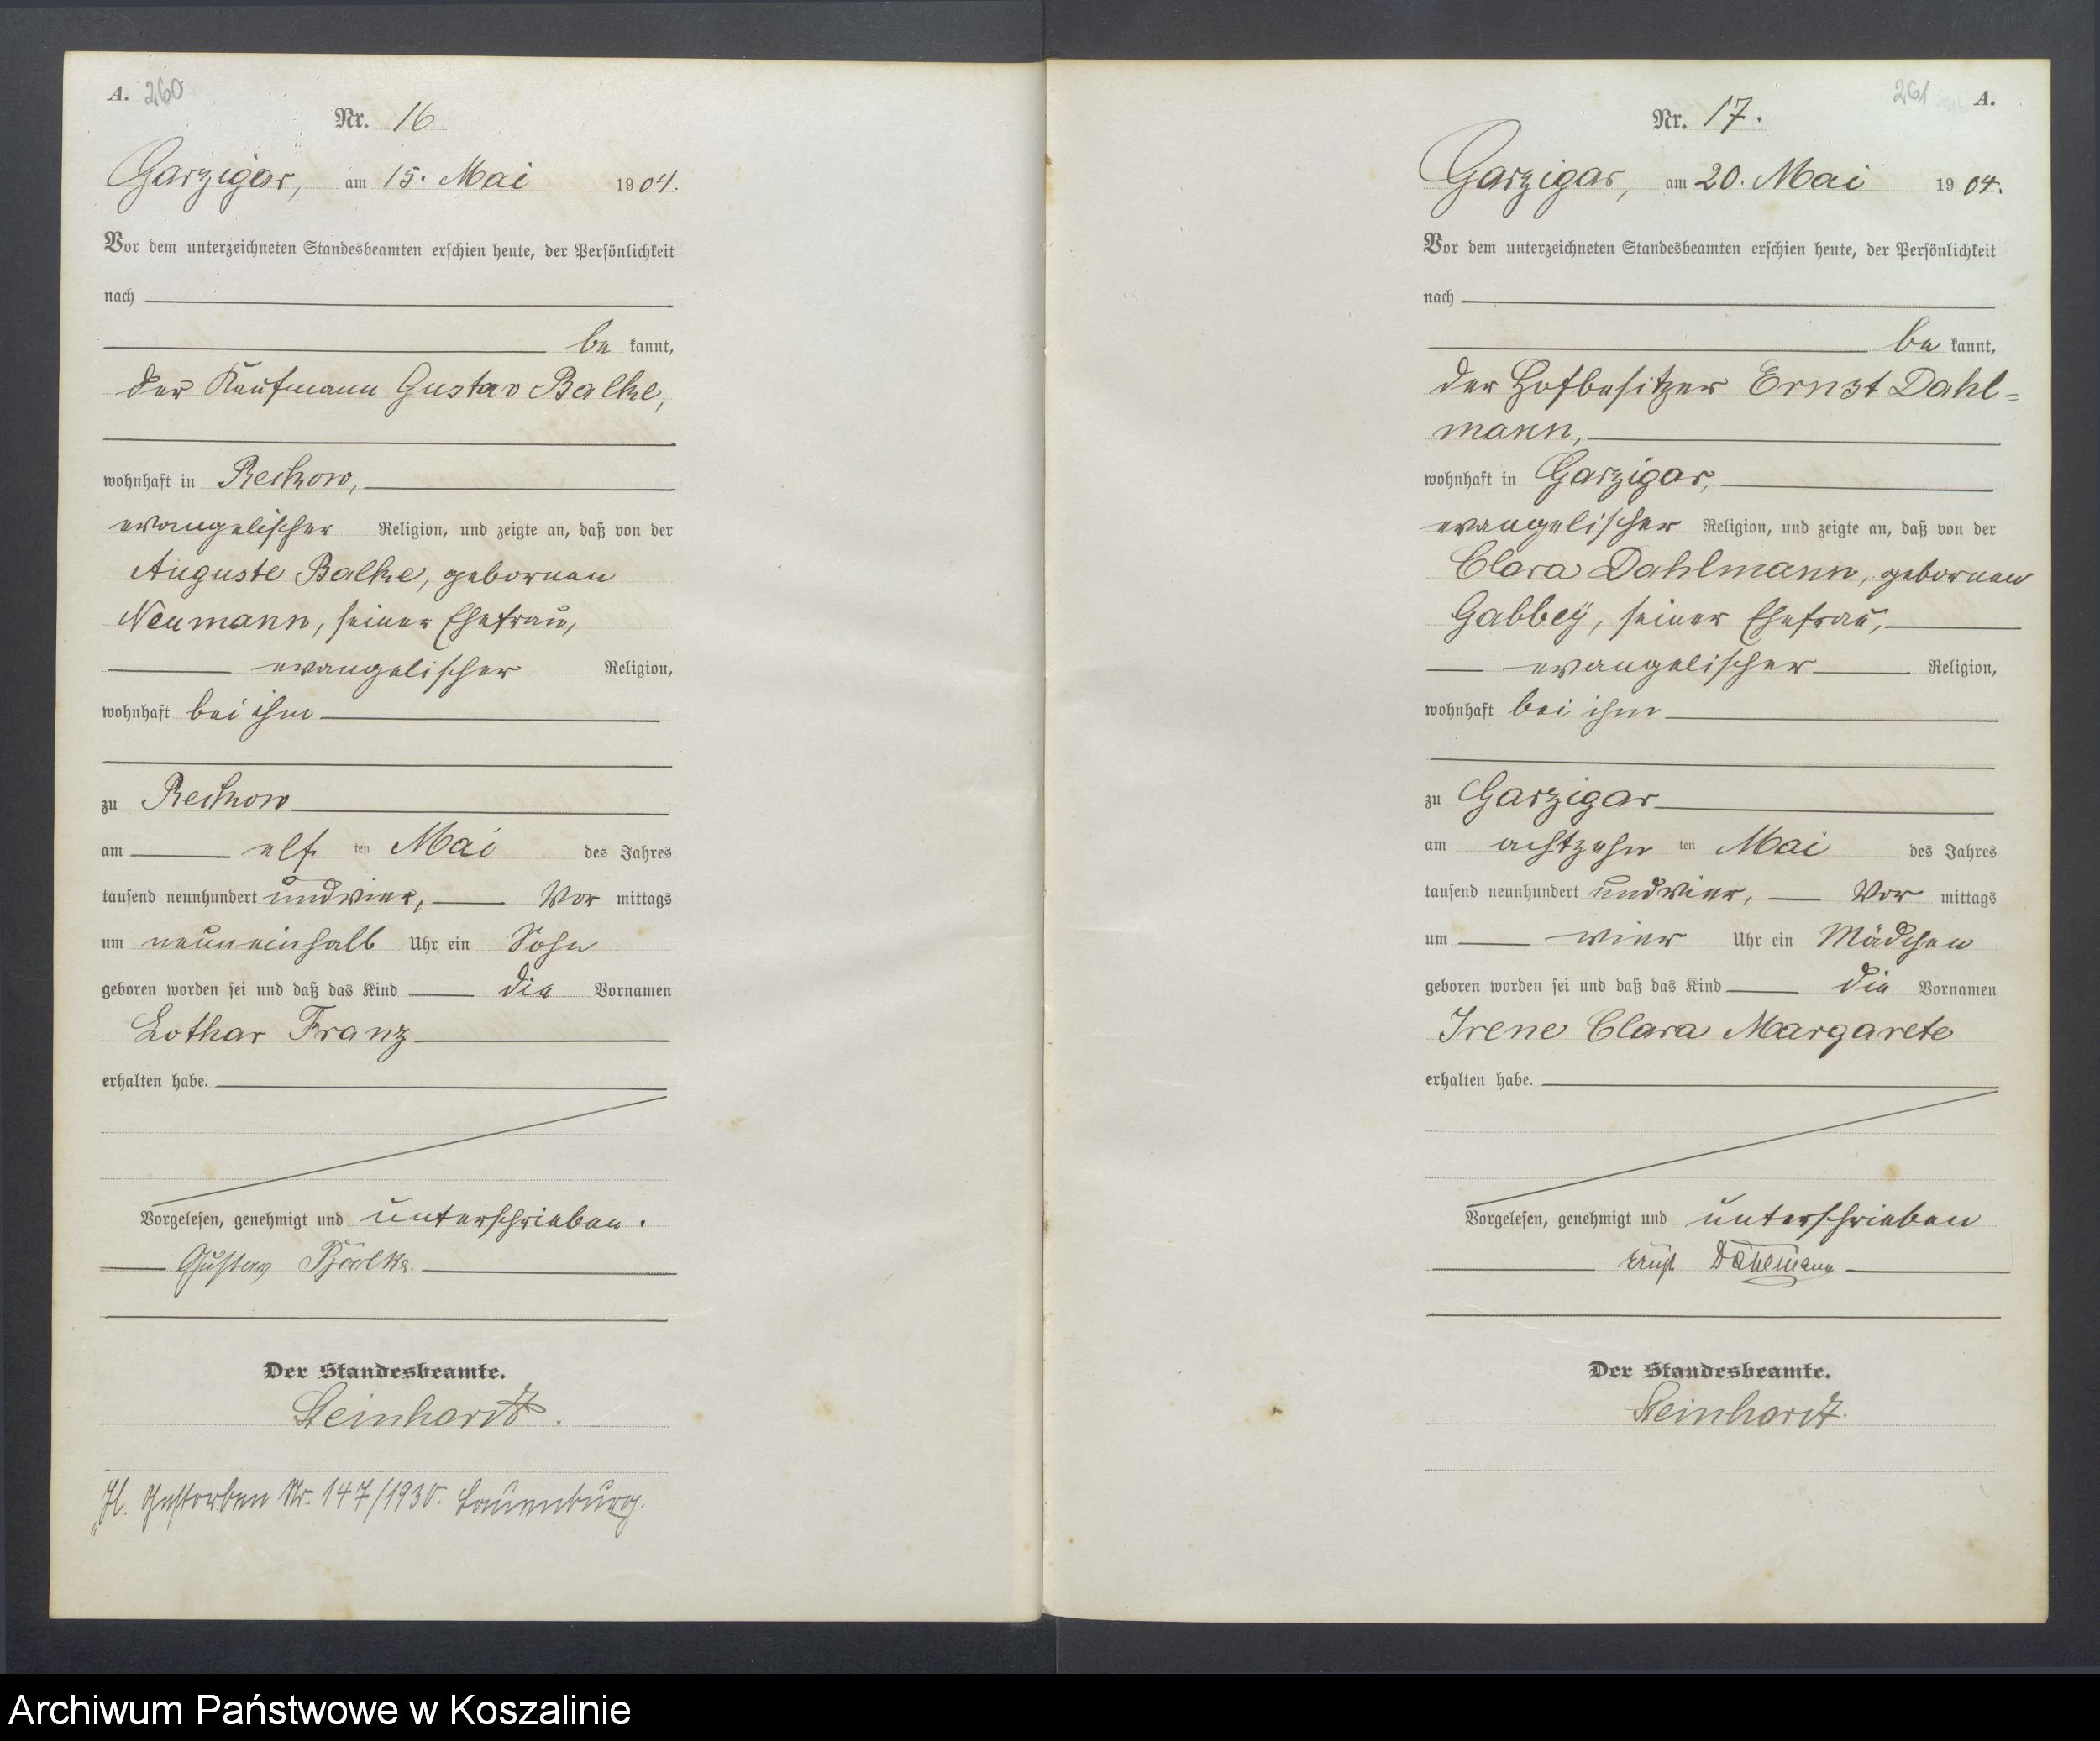 A. 260
Nr. 16
Garzigar, am 15. Mai 1904.
Vor dem unterzeichneten Standesbeamten erschien heute, der Persönlichkeit
nach
be kannt,
der Kaufmann Gustav Balke,
wohnhaft in Reckow,
evangelischer Religion, und zeigte an, daß von der
Auguste Balke, geborenen
Neumann, seiner Ehefrau,
evangelischer Religion,
wohnhaft bei ihm
zu Reckow
am elf ten Mai des Jahres
tausend neunhundert undvier, Vor mittags
um neuneinhalb Uhr ein Sohn
geboren worden sei und daß das Kind die Vornamen
Lothar Franz
erhalten habe.
Vorgelesen, genehmigt und unterschrieben.
Gustav Balke.
Der Standesbeamte.
Steinhardt.
Gestorben Nr. 147/1930. Lauenburg.
261 A.
Nr. 17.
Garzigar, am 20. Mai 1904.
Vor dem unterzeichneten Standesbeamten erschien heute, der Persönlichkeit
nach
be kannt,
der Hofbesitzer Ernst Dahl=
mann,
wohnhaft in Garzigar,
evangelischer Religion, und zeigte an, daß von der
Clara Dahlmann, geborenen
Gabbey, seiner Ehefrau,
evangelischer Religion,
wohnhaft bei ihm
zu Garzigar
am achtzehn ten Mai des Jahres
tausend neunhundert undvier, Vor mittags
um vier Uhr ein Mädchen
geboren worden sei und daß das Kind die Vornamen
Irene Clara Margarete
erhalten habe.
Vorgelesen, genehmigt und unterschrieben
Ernst Dahlmann
Der Standesbeamte.
Steinhardt.
Archiwum Państwowe w Koszalinie